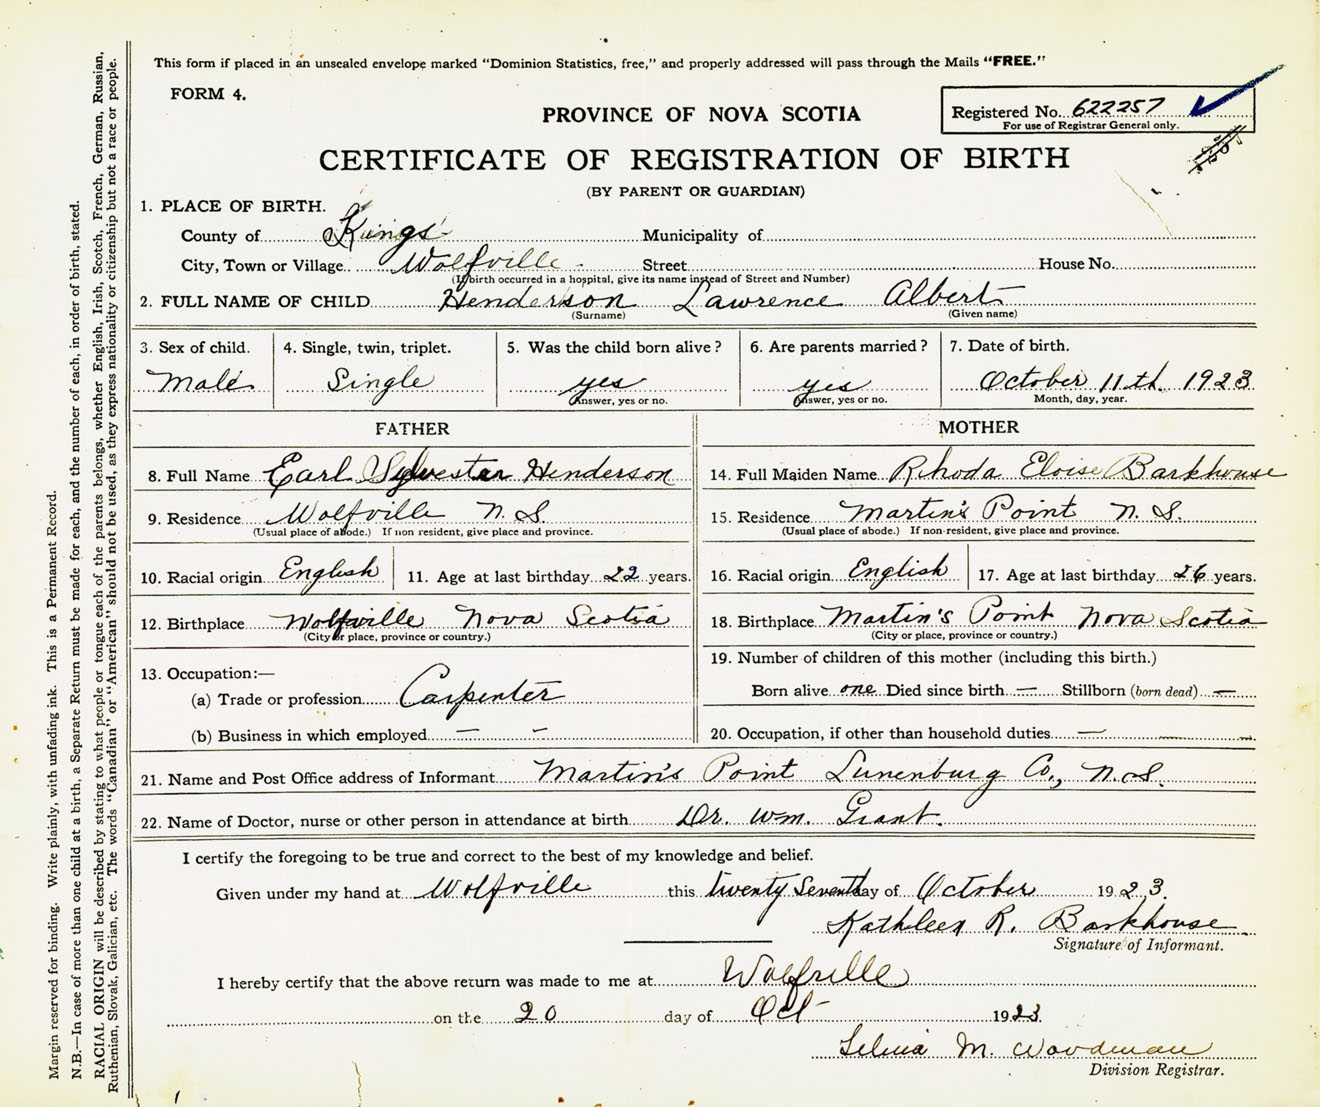 This form if placed in an unsealed envelope marked "Dominion Statistics, free," and properly addressed will pass through the Mails "FREE."
FORM 4.
PROVINCE OF NOVA SCOTIA
Registered No. 622257
For use of Registrar General only.
CERTIFICATE OF REGISTRATION OF BIRTH
(BY PARENT OR GUARDIAN)
1. PLACE OF BIRTH.
County of Kings Municipality of
City, Town or Village Wolfville Street House No.
(If birth occurred in a hospital, give its name instead of Street and Number)
2. FULL NAME OF CHILD Henderson Lawrence Albert
(Surname) (Given name)
3. Sex of child. 4. Single, twin, triplet. 5. Was the child born alive? 6. Are parents married? 7. Date of birth.
Male Single yes yes October 11th 1923
Answer, yes or no. Answer, yes or no. Month, day, year.
FATHER MOTHER
8. Full Name Earl Sylvester Henderson 14. Full Maiden Name Rhoda Eloise Barkhouse
9. Residence Wolfville N.S. 15. Residence Martin's Point N.S.
(Usual place of abode.) If non resident, give place and province. (Usual place of abode.) If non-resident, give place and province.
10. Racial origin English 11. Age at last birthday 22 years. 16. Racial origin English 17. Age at last birthday 26 years.
12. Birthplace Wolfville Nova Scotia 18. Birthplace Martin's Point Nova Scotia
(City or place, province or country.) (City or place, province or country.)
13. Occupation:— 19. Number of children of this mother (including this birth.)
(a) Trade or profession Carpenter Born alive one Died since birth — Stillborn (born dead) —
(b) Business in which employed — - 20. Occupation, if other than household duties —
21. Name and Post Office address of Informant Martin's Point Lunenburg Co., N.S.
22. Name of Doctor, nurse or other person in attendance at birth Dr. Wm. Grant.
I certify the foregoing to be true and correct to the best of my knowledge and belief.
Given under my hand at Wolfville this twenty Seventh day of October 1923.
Kathleen R. Barkhouse
Signature of Informant.
I hereby certify that the above return was made to me at Wolfville
on the 20 day of Oct- 1923.
M. Woodman
Division Registrar.
Margin reserved for binding. Write plainly, with unfading ink. This is a Permanent Record.
N.B.—In case of more than one child at a birth, a Separate Return must be made for each, and the number of each, in order of birth, stated.
RACIAL ORIGIN will be described by stating to what people or tongue each of the parents belongs, whether English, Irish, Scotch, French, German, Russian,
Ruthenian, Slovak, Galician, etc. The words "Canadian" or "American" should not be used, as they express nationality or citizenship but not a race or people.